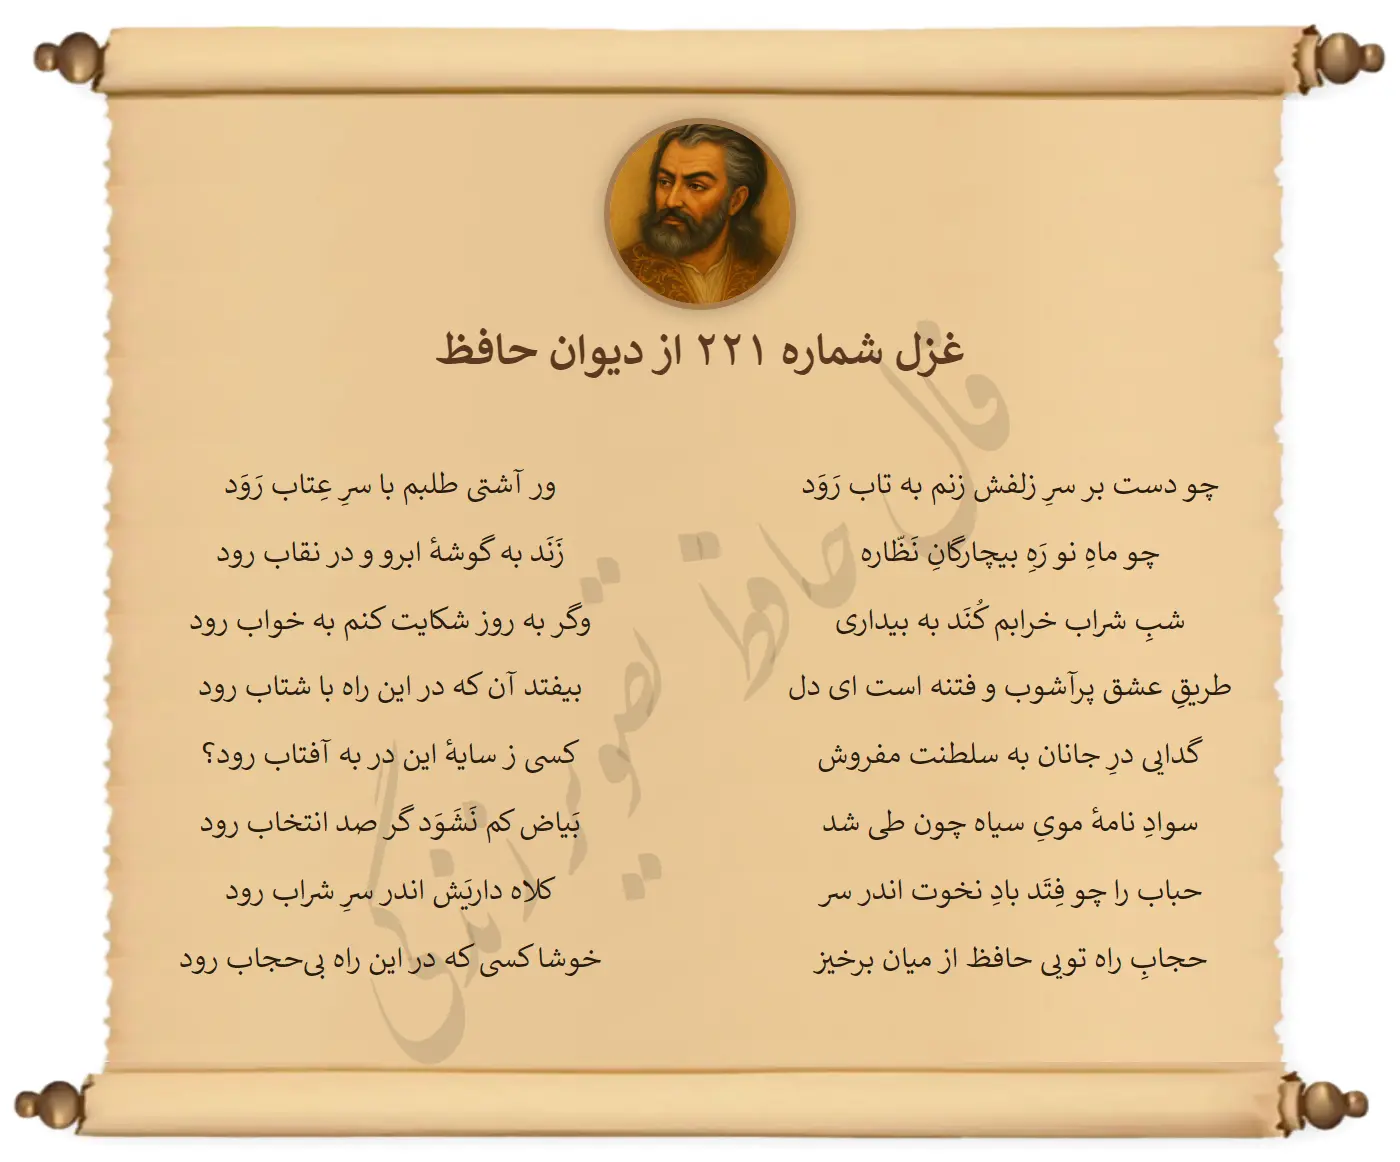 غزل شماره ۲۲۱ از دیوان حافظ
چو دست بر سرِ زلفش زنم به تاب رَوَد
ور آشتی طلبم با سرِ عِتاب رَوَد
چو ماهِ نو رَهِ بیچارگانِ نَظّاره
زَنَد به گوشهٔ ابرو و در نقاب رود
شبِ شراب خرابم کُنَد به بیداری
وگر به روز شکایت کنم به خواب رود
طریقِ عشق پرآشوب و فتنه است ای دل
بیفتد آن که در این راه با شتاب رود
گدایی درِ جانان به سلطنت مفروش
کسی ز سایهٔ این در به آفتاب رود؟
سوادِ نامهٔ مویِ سیاه چون طی شد
بَیاض کم نَشَوَد گر صد انتخاب رود
حباب را چو فِتَد بادِ نخوت اندر سر
کلاه داریَش اندر سرِ شراب رود
حجابِ راه تویی حافظ از میان برخیز
خوشا کسی که در این راه بی‌حجاب رود
فال حافظ تصویر زندگی